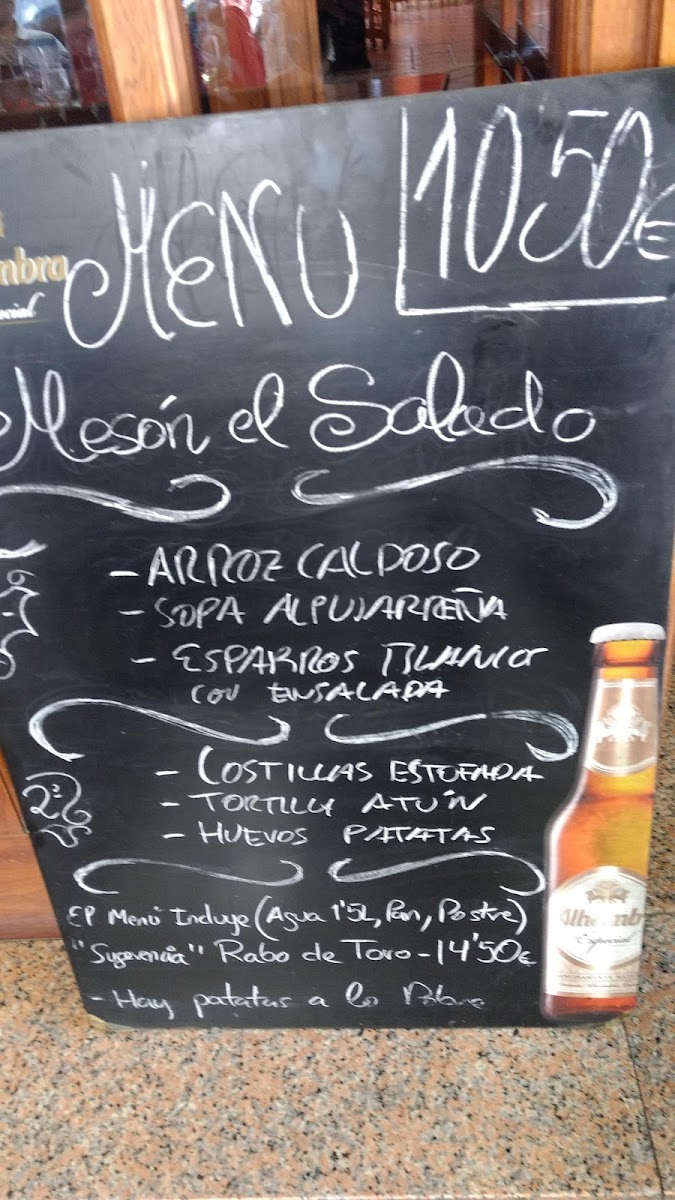 mbra
cial
MENU 10 50€
Mesón el Salado
- ARROZ CALDOSO
- SOPA ALPUJARREÑA
- ESPARROS BLANCOS
CON ENSALADA
2º
- COSTILLAS ESTOFADA
- TORTILLA ATÚN
- HUEVOS PATATAS
El Menú Incluye (Agua 1'5L, Pan, Postre)
"Sugerencia" Rabo de Toro - 14'50€
- Hay patatas a lo Pobre
Alhambr
Especial